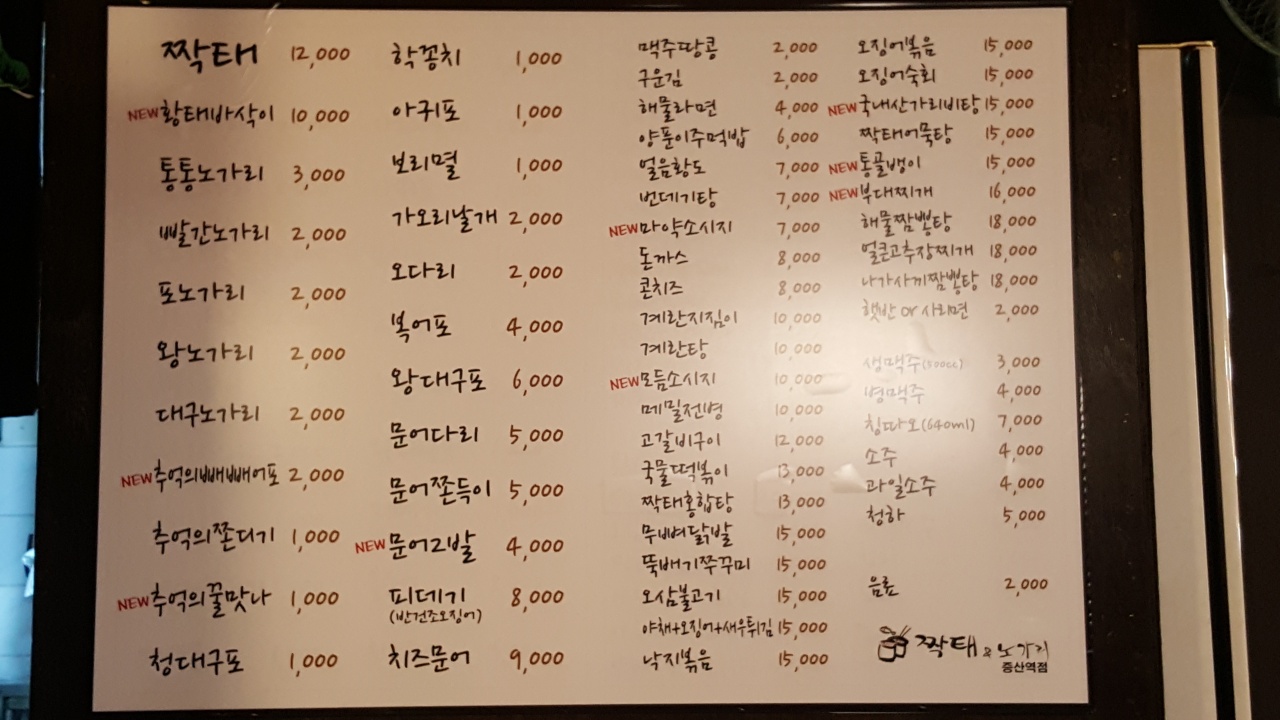 짝태 12,000
NEW 황태바삭이 10,000
통통노가리 3,000
빨간노가리 2,000
포노가리 2,000
왕노가리 2,000
대구노가리 2,000
NEW 추억의빼빼어포 2,000
추억의쫀디기 1,000
NEW 추억의꿀맛나 1,000
청대구포 1,000
학꽁치 1,000
아귀포 1,000
보리멸 1,000
가오리날개 2,000
오다리 2,000
복어포 4,000
왕대구포 6,000
문어다리 5,000
문어쫀득이 5,000
NEW 문어2발 4,000
피데기 8,000
(반건조오징어)
치즈문어 9,000
맥주땅콩 2,000
구운김 2,000
해물라면 4,000
양푼이주먹밥 6,000
얼음황도 7,000
번데기탕 7,000
NEW 마약소시지 7,000
돈까스 8,000
콘치즈 8,000
계란지짐이 10,000
계란탕 10,000
NEW 모듬소시지 10,000
메밀전병 10,000
고갈비구이 12,000
국물떡볶이 13,000
짝태홍합탕 13,000
무뼈닭발 15,000
뚝배기쭈꾸미 15,000
오삼불고기 15,000
야채+오징어+새우튀김 15,000
낙지볶음 15,000
오징어볶음 15,000
오징어숙회 15,000
NEW 국내산가리비탕 15,000
짝태어묵탕 15,000
NEW 통골뱅이 15,000
NEW 부대찌개 16,000
해물짬뽕탕 18,000
얼큰고추장찌개 18,000
나가사끼짬뽕탕 18,000
햇반 or 사리면 2,000
생맥주(500cc) 3,000
병맥주 4,000
칭따오(640ml) 7,000
소주 4,000
과일소주 4,000
청하 5,000
음료 2,000
짝태 & 노가리
증산역점